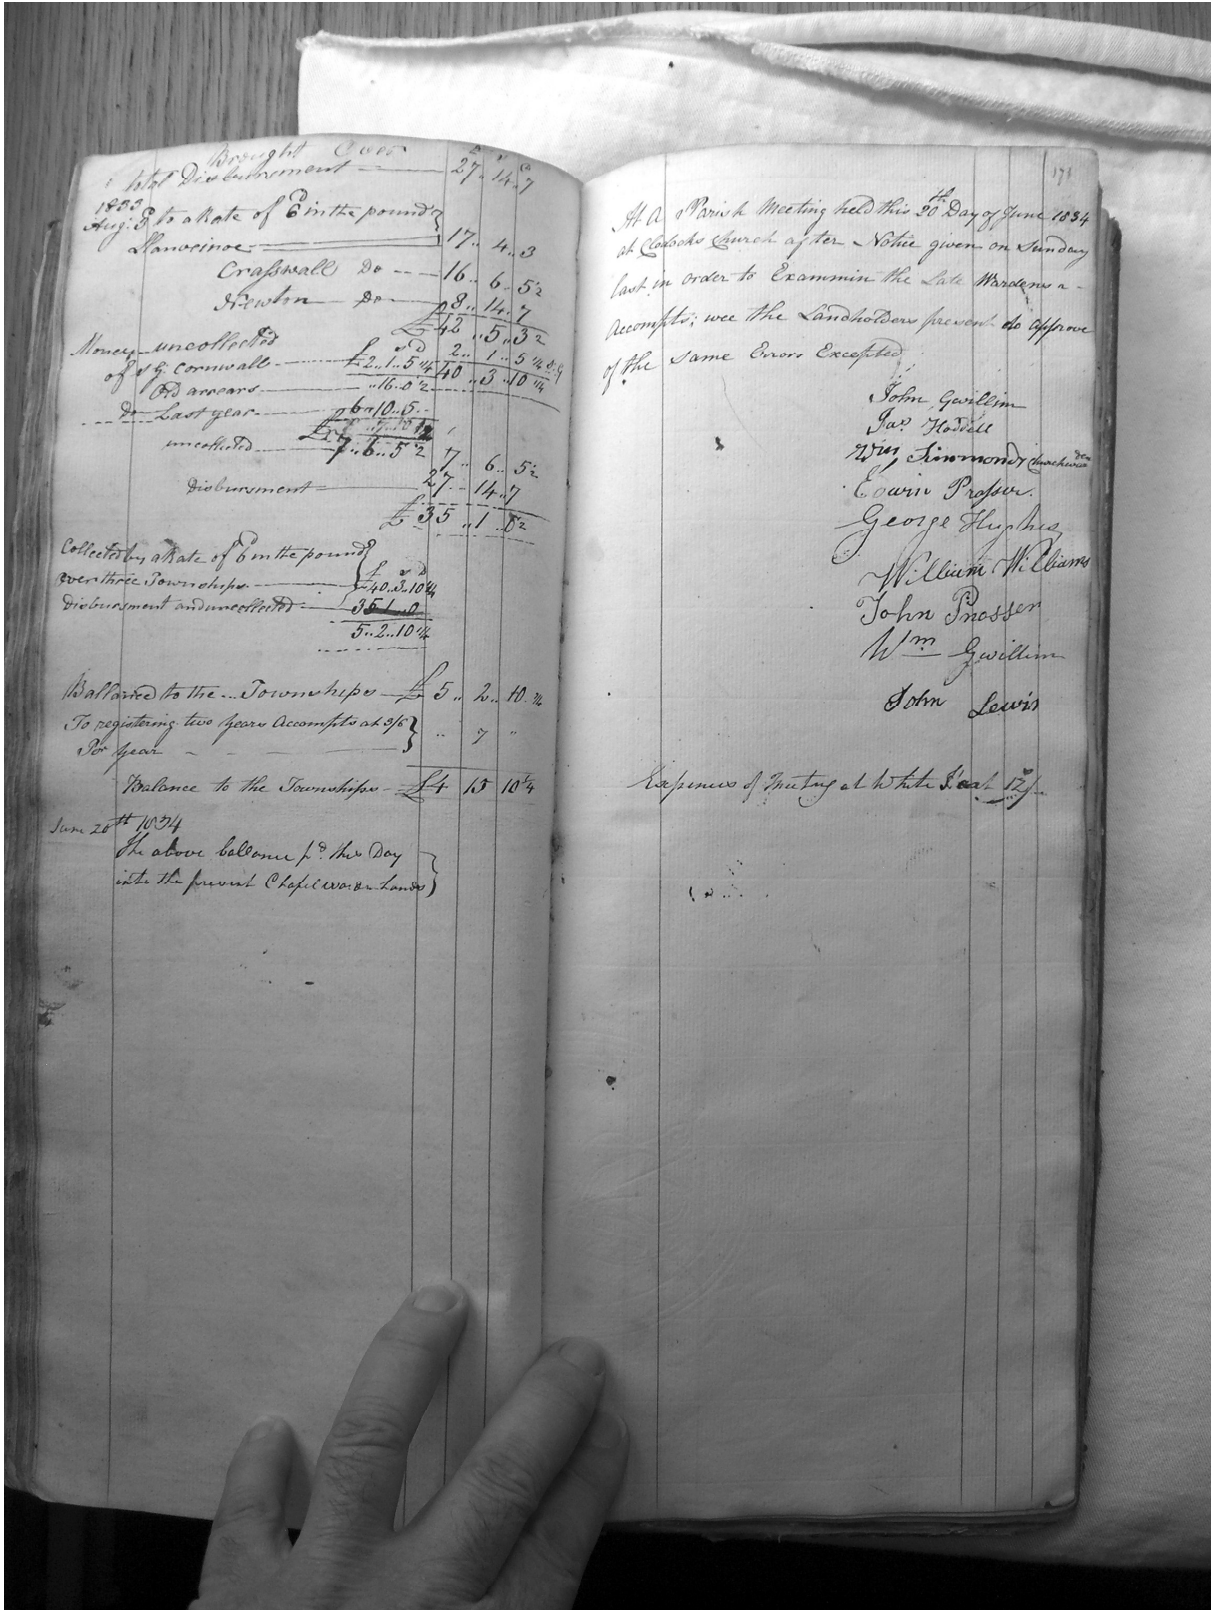 Brought Over
total Disbursement 27 .. 14 .. 7
1833
Aug: 3 to a Rate of 6d in the pound
Llanveinoe 17 .. 4 .. 3
Crasswall Do 16 .. 6 .. 5½
Newton Do 8 .. 14 .. 7
£42 .. 5 .. 3½
Money uncollected £ s D
of Cornwall £2 .. 1 .. 5¼ 2 .. 1 .. 5¼
Old arrears .. 16 .. 0½ 40 .. 3 .. 10¼
Do Last year 6 .. 10 .. 5
uncollected 7 .. 6 .. 5½ 7 .. 6 .. 5½
Disbursment 27 .. 14 .. 7
£35 .. 1 .. 0½
Collected by a Rate of 6d in the pound
over three Townships £40 .. 3 .. 10¼
Disbursment and uncollected 35 .. 1 .. 0
5 .. 2 .. 10¼
Ballance to the Townships £5 .. 2 .. 10¼
To registering two years Accompts at 3/6
Per year .. 7 ..
Balance to the Townships £4 15 10¼
June 20th 1834
The above ballance pd. this Day
into the present Chapelwarden hands
171
At A Parish Meeting held this 20th Day of June 1834
at Clodocks Church after Notice given on Sunday
last in order to Exammin the Late Wardens
Accompts; wee the Landholders present do approve
of the same Errors Excepted
John Gwillim
Jas Hoddell
Wm Simmonds Churchwarden
Edwin Prosser.
George Hughes
William Williams
John Prosser
Wm Gwillim
John Lewis
Expences of Meeting at White 12/-